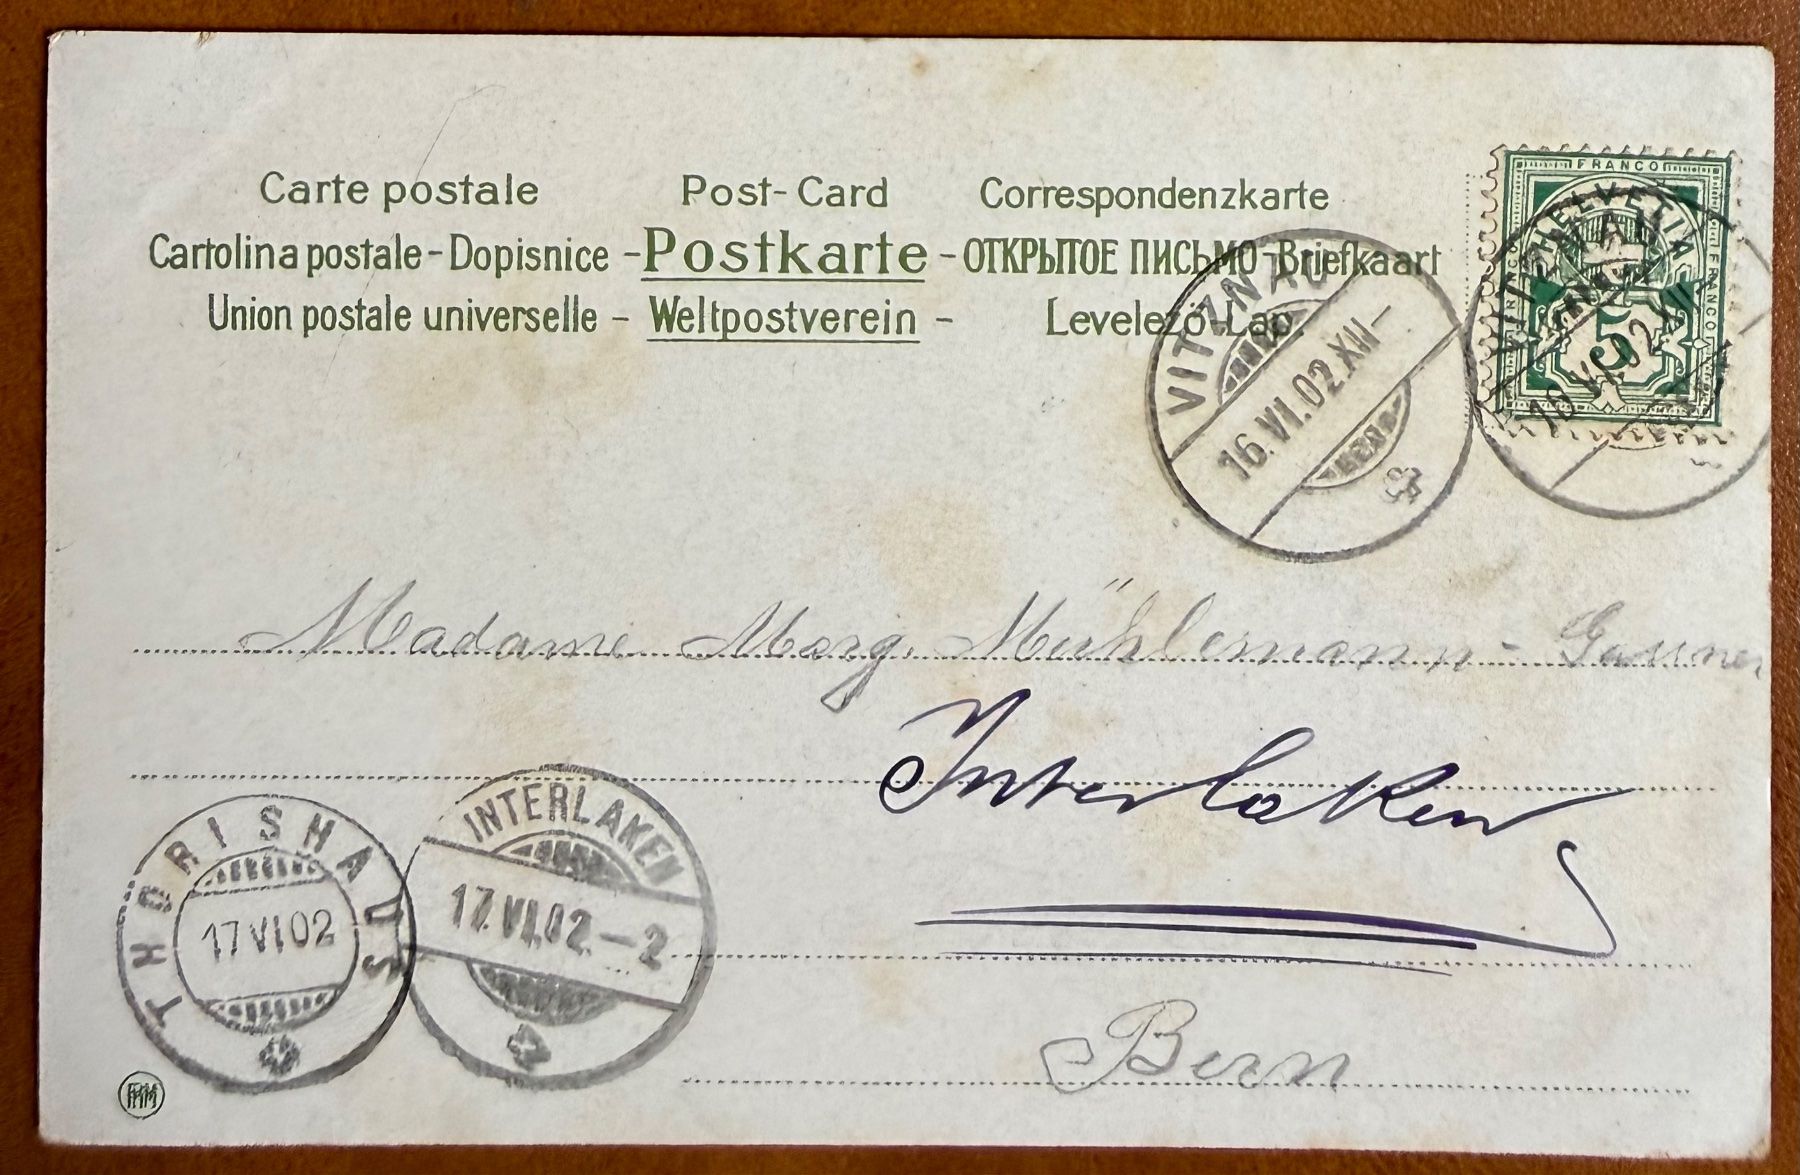 Carte postale Post-Card Correspondenzkarte
Cartolina postale - Dopisnice - Postkarte - ОТКРЫТОЕ ПИСЬМО - Briefkaart
Union postale universelle - Weltpostverein - Levelező-Lap.
FRANCO
HELVETIA
FRANCO
5
VITZNAU
16.VI.02.XII-
VITZNAU
16.VI.02.XII
Madame Marg. Mühlemann-
Interlaken
INTERLAKEN
17.VI.02.-2
THÖRISHAUS
17 VI 02
Bern